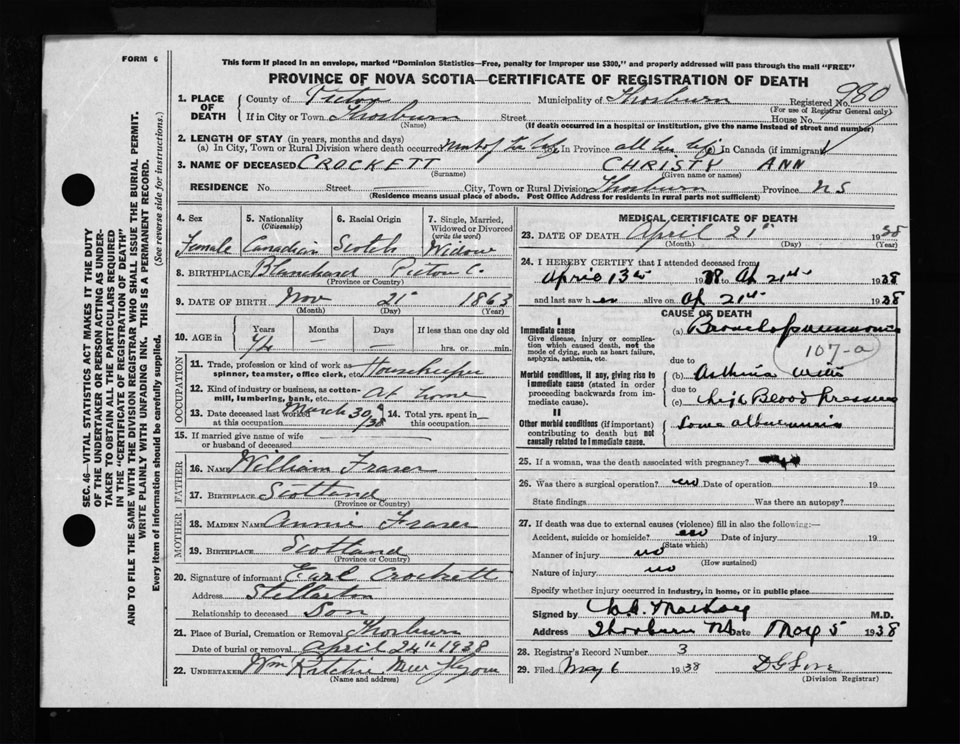 FORM 6
This form if placed in an envelope, marked "Dominion Statistics—Free, penalty for improper use $300," and properly addressed will pass through the mail "FREE"
PROVINCE OF NOVA SCOTIA—CERTIFICATE OF REGISTRATION OF DEATH
1. PLACE OF DEATH
County of Pictou Municipality of Thorburn Registered No. 980
(For use of Registrar General only)
If in City or Town Thorburn Street House No.
(Name) (If death occurred in a hospital or institution, give the name instead of street and number)
2. LENGTH OF STAY (in years, months and days)
(a) In City, Town or Rural Division where death occurred most of her life In Province all her life In Canada (if immigrant)
3. NAME OF DECEASED CROCKETT CHRISTY ANN
(Surname) (Given name or names)
RESIDENCE No. Street City, Town or Rural Division Thorburn Province NS
(Residence means usual place of abode. Post Office Address for residents in rural parts not sufficient)
4. Sex Female
5. Nationality (Citizenship) Canadian
6. Racial Origin Scotch
7. Single, Married, Widowed or Divorced (write the word) Widow
8. BIRTHPLACE Blanchard Pictou C.
(Province or Country)
9. DATE OF BIRTH Nov 21st 1863
(Month) (Day) (Year)
10. AGE in Years 74 Months — Days — If less than one day old hrs. or min.
OCCUPATION
11. Trade, profession or kind of work as spinner, teamster, office clerk, etc. Housekeeper
12. Kind of industry or business, as cotton-mill, lumbering, bank, etc. At home
13. Date deceased last worked at this occupation March 30, /38
14. Total yrs. spent in this occupation
15. If married give name of wife or husband of deceased
FATHER
16. NAME William Fraser
17. BIRTHPLACE Scotland
(Province or Country)
MOTHER
18. MAIDEN NAME Annie Fraser
19. BIRTHPLACE Scotland
(Province or Country)
20. Signature of informant Earl Crockett
Address Stellarton
Relationship to deceased Son
21. Place of Burial, Cremation or Removal Thorburn
Date of burial or removal April 24th 1938
22. UNDERTAKER Wm Ritchie
(Name and address)
MEDICAL CERTIFICATE OF DEATH
23. DATE OF DEATH April 21st 1938
(Month) (Day) (Year)
24. I HEREBY CERTIFY that I attended deceased from
April 13th 1938 Ap 21st 1938
and last saw her alive on Ap 21st 1938
CAUSE OF DEATH
I
Immediate cause
Give disease, injury or complication which caused death, not the mode of dying, such as heart failure, asphyxia, asthenia, etc.
(a) Bronchopneumonia
107-a
due to
Morbid conditions, if any, giving rise to immediate cause (stated in order proceeding backwards from immediate cause).
(b) Asthma with
due to
(c) High Blood Pressure
II
Other morbid conditions (if important) contributing to death but not causally related to immediate cause.
Some albuminuria
25. If a woman, was the death associated with pregnancy?
26. Was there a surgical operation? no Date of operation 19
State findings Was there an autopsy?
27. If death was due to external causes (violence) fill in also the following:—
Accident, suicide or homicide? no Date of injury 19
(State which)
Manner of injury no
(How sustained)
Nature of injury no
Specify whether injury occurred in industry, in home, or in public place
Signed by M.D.
Address Thorburn NS Date May 5 1938
28. Registrar's Record Number 3
29. Filed May 6 1938 D G Love
(Division Registrar)
SEC. 46—VITAL STATISTICS ACT MAKES IT THE DUTY
OF THE UNDERTAKER OR PERSON ACTING AS UNDER-
TAKER TO OBTAIN ALL THE PARTICULARS REQUIRED
IN THE "CERTIFICATE OF REGISTRATION OF DEATH"
AND TO FILE THE SAME WITH THE DIVISION REGISTRAR WHO SHALL ISSUE THE BURIAL PERMIT.
WRITE PLAINLY WITH UNFADING INK. THIS IS A PERMANENT RECORD.
Every item of information should be carefully supplied. (See reverse side for instructions.)